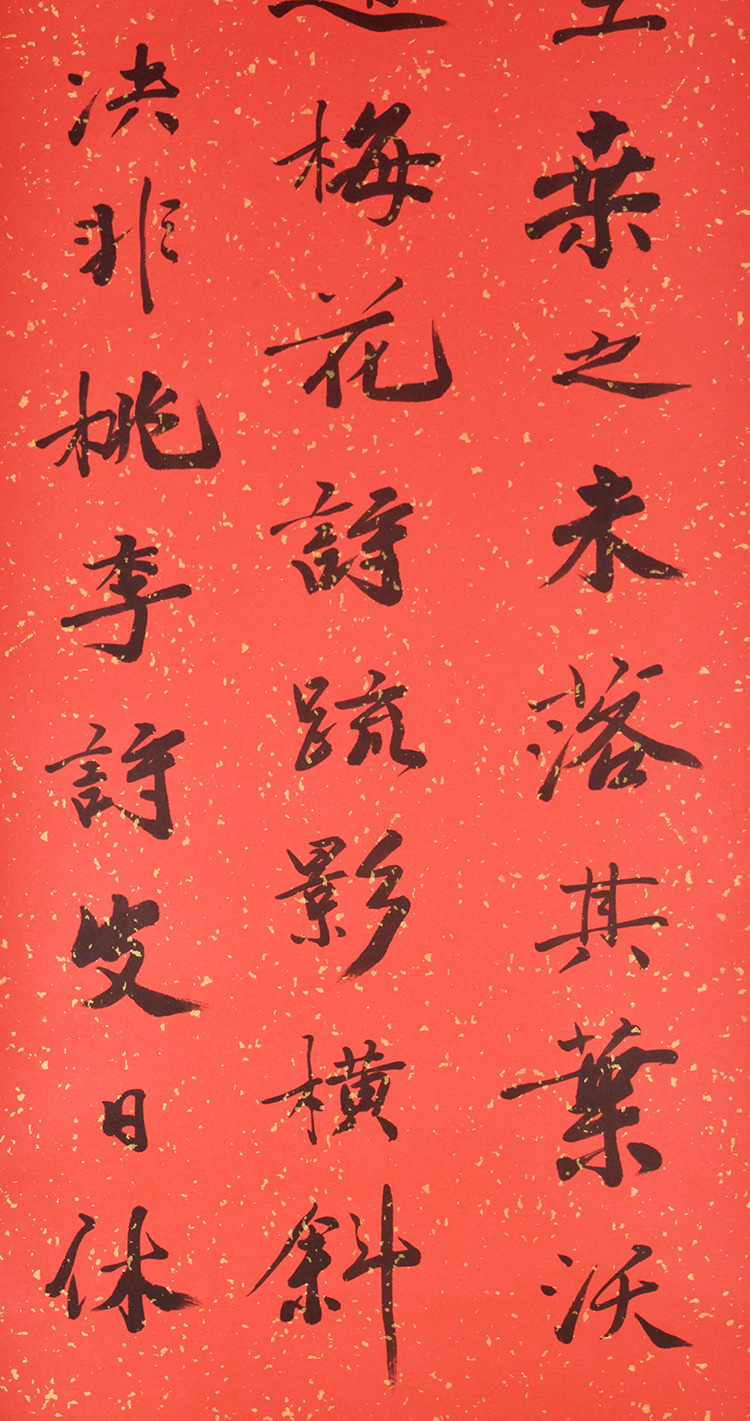 桒之未落其葉沃
梅花詩疏影横斜
决非桃李詩皮日休